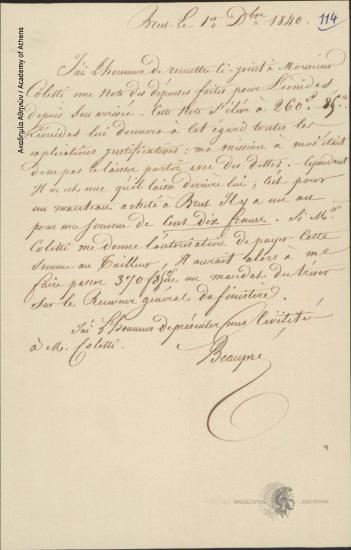 Brest Le 1er Dbre 1840.
114
J'ai L'honneur de remettre ci-joint à Monsieur
Coletti une Note des depenses faites pour Léonidas
depuis son arrivée. Cette Note s'élève à 260
Léonidas lui donnera à cet égard toutes les
explications justificatives: ma mission à moi était
de ne pas le laisser partir avec des dettes. Cependant
Il en est une qu'il laisse derrière lui; C'est pour
un manteau acheté à Brest Il y a un an
pour une somme de Cent dix francs. Si Mr.
Coletti me donne l'autorisation de payer Cette
somme au Tailleur, Il aurait alors à me
faire passer 370 un mandat du trésor
sur le Receveur général du finistère.
J'ai L'honneur de présenter mes Civilités
à M. Coletti.
Beaupré
Ακαδημία Αθηνών / Academy of Athens
ΑΚΑΔΗΜΙΑ ΑΘΗΝΩΝ